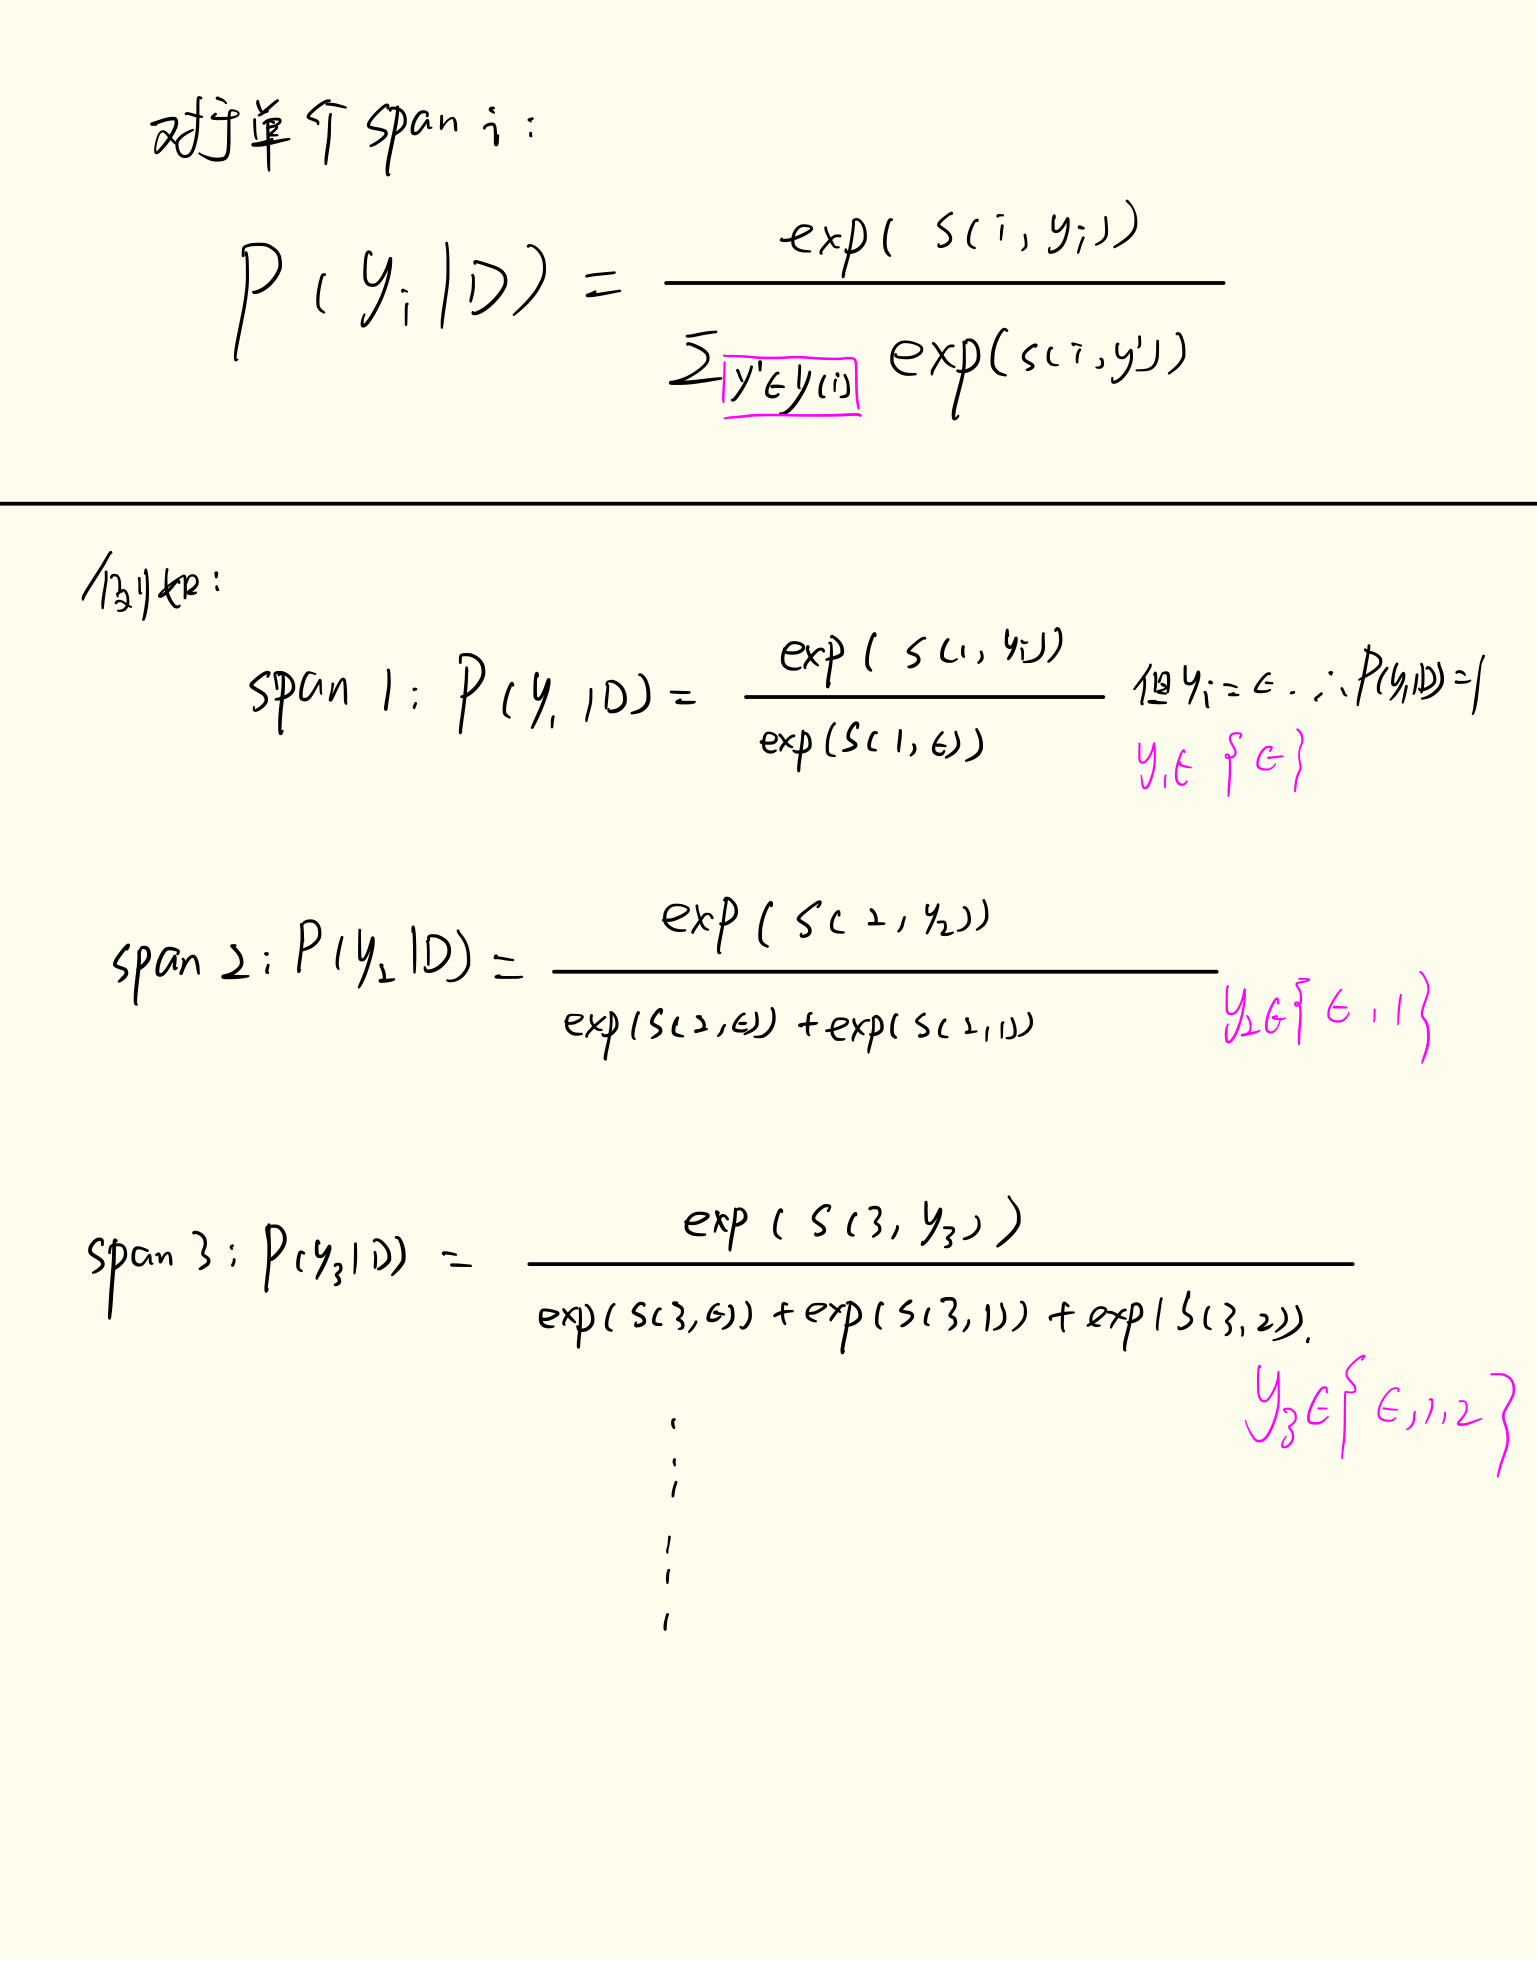 对于单个 span i:
P(yᵢ|D) = exp( s(i, yᵢ)) / Σ y'∈y(i) exp(s(i,y'))
例如:
span 1: P(y₁|D) = exp( s(1, yᵢ)) / exp(s(1,ϵ)) 但 yᵢ = ϵ. ∴ P(y₁|D)=1
y₁∈ {ϵ}
span 2: P(y₂|D) = exp( s( 2, y₂)) / exp(s(2,ϵ)) + exp( s(2,1)) y₂∈{ϵ,1}
span 3: P(y₃|D) = exp ( s(3, y₃) ) / exp( s(3,ϵ)) + exp( s(3,1)) + exp( s(3,2)).
y₃∈{ϵ,1,2}